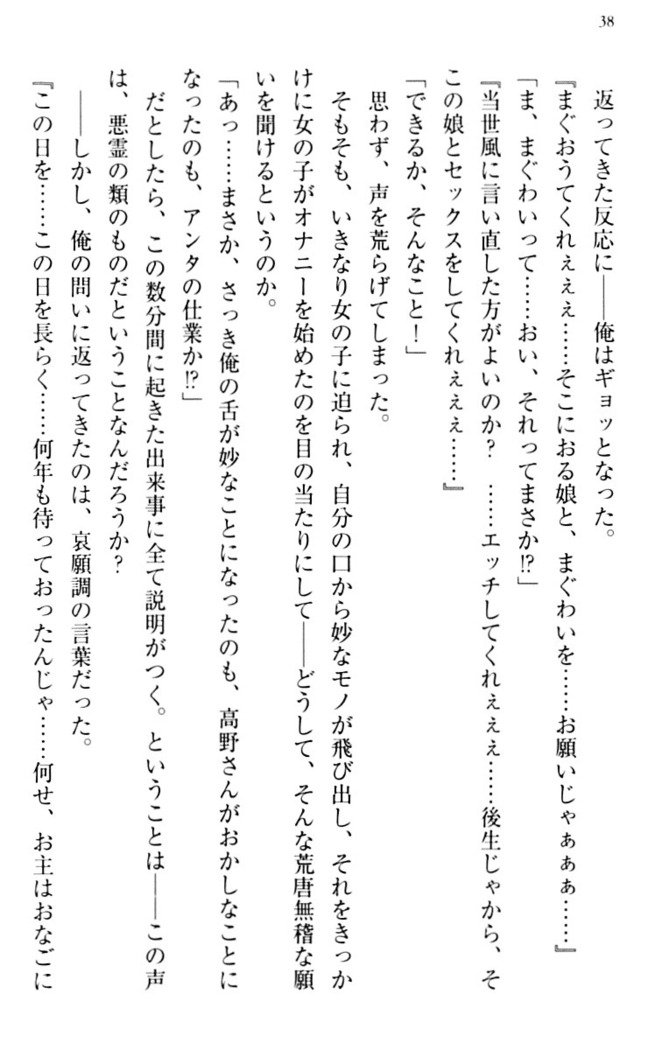 38
返ってきた反応に――俺はギョッとなった。
『まぐおうてくれぇぇぇ……そこにおる娘と、まぐわいを……お願いじゃぁぁぁ……』
「ま、まぐわいって……おい、それってまさか!?」
『当世風に言い直した方がよいのか？　……エッチしてくれぇぇぇ……後生じゃから、そ
この娘とセックスをしてくれぇぇぇ……』
「できるか、そんなこと！」
思わず、声を荒らげてしまった。
そもそも、いきなり女の子に迫られ、自分の口から妙なモノが飛び出し、それをきっか
けに女の子がオナニーを始めたのを目の当たりにして――どうして、そんな荒唐無稽な願
いを聞けるというのか。
「あっ……まさか、さっき俺の舌が妙なことになったのも、高野さんがおかしなことに
なったのも、アンタの仕業か!?」
だとしたら、この数分間に起きた出来事に全て説明がつく。ということは――この声
は、悪霊の類のものだということなんだろうか？
――しかし、俺の問いに返ってきたのは、哀願調の言葉だった。
『この日を……この日を長らく……何年も待っておったんじゃ……何せ、お主はおなごに